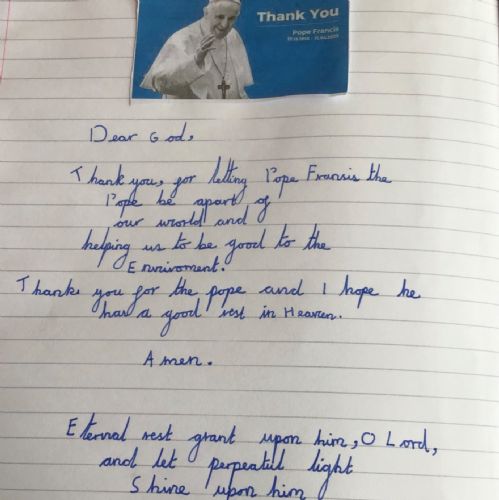 Thank You
Pope Francis
Dear God,
Thank you, for letting Pope Fransis the
Pope be apart of
our world and
helping us to be good to the
Enviroment.
Thank you for the pope and I hope he
has a good rest in Heaven.
Amen.
Eternal rest grant upon him, O Lord,
and let perpeatul light
Shine upon him